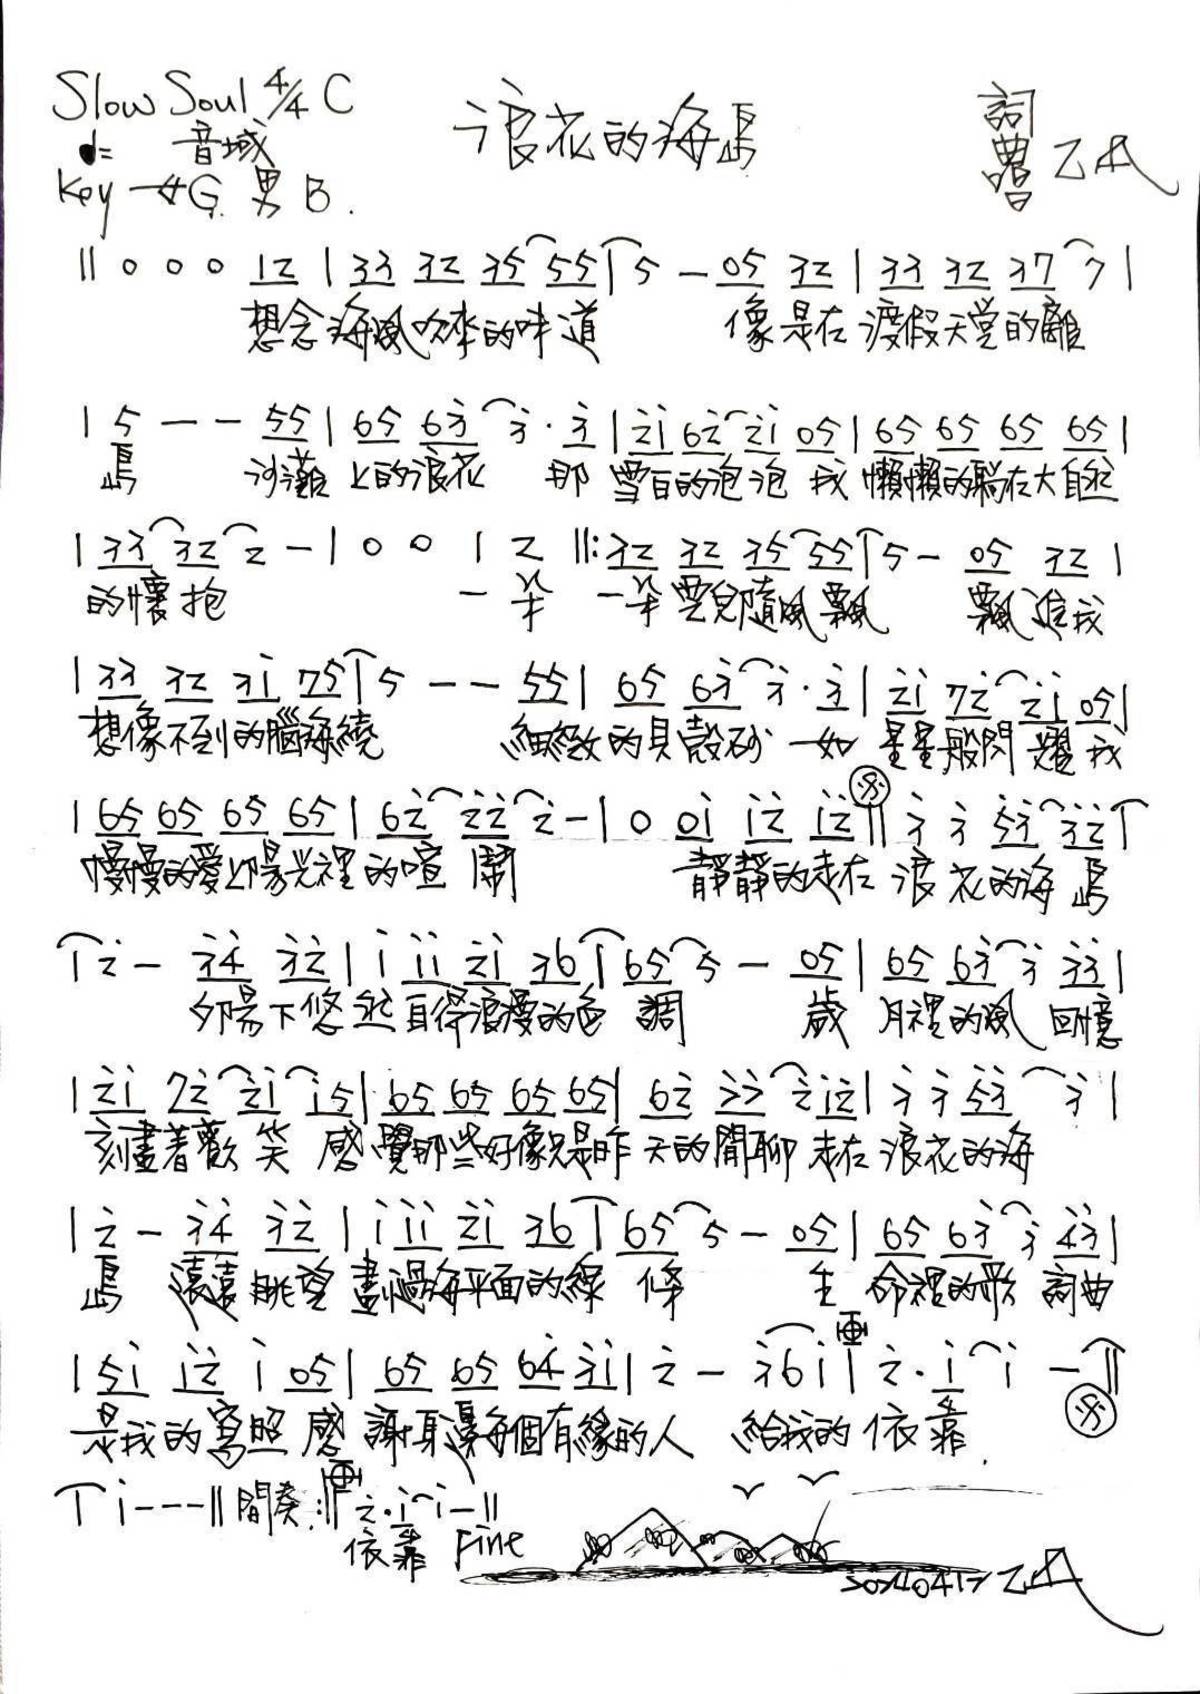 Slow Soul 4/4 C
浪花的海島
詞
曲
♩= 音域
Key 女G. 男B.
|| 0 0 0 12 | 33 32 35 55 | 5 — 05 32 | 33 32 37 7 |
想念海風吹來的味道 像是在渡假天堂的離
| 5 — — 55 | 65 63 3 · 3 | 21 62 21 05 | 65 65 65 65 |
島 沙灘上的浪花 那雪白的泡泡 我懶懶的躺在大自然
| 33 32 2 — | 0 0 1 2 ||: 32 32 35 55 | 5 — 05 32 |
的懷抱 一朵 一朵雲兒隨風飄 飄進我
| 33 32 31 75 | 5 — — 55 | 65 63 3 · 3 | 21 72 21 05 |
想像不到的腦海繞 細緻的貝殼砂 一如星星般閃耀 我
| 65 65 65 65 | 62 22 2 — | 0 01 12 12 || 3 3 53 32 |
慢慢的愛上陽光裡的喧鬧 靜靜的走在浪花的海島
| 2 — 34 32 | 1 11 21 36 | 65 5 — 05 | 65 63 3 33 |
夕陽下悠然自得浪漫的色調 歲月裡的風 回憶
| 21 72 21 15 | 65 65 65 65 | 62 22 2 12 | 3 3 53 3 |
刻畫著歡笑 感覺那些好像只是昨天的閒聊 走在浪花的海
| 2 — 34 32 | 1 11 21 36 | 65 5 — 05 | 65 63 3 43 |
島 遠遠眺望 劃過海平面的線條 生命裡的歌 詞曲
| 51 12 1 05 | 65 65 64 31 | 2 — 36 1 | 2 · 1 1 — ||
是我的寫照 感謝身邊每個有緣的人 給我的依靠.
| 1 — — — || 間奏 :|| 2 · 1 1 — ||
依靠 Fine